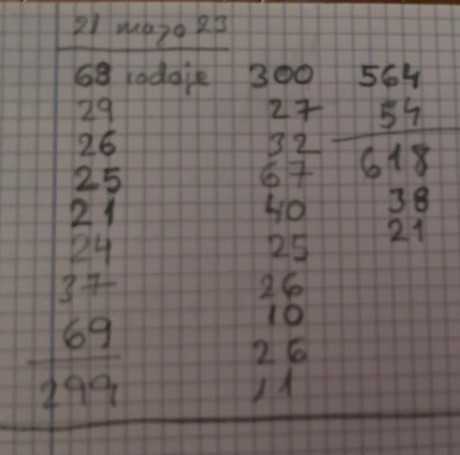 21 mayo 23
68 rodaje 300 564
29 27 54
26 32 618
25 67 38
21 40 21
24 25
37 26
69 10
299 26
11